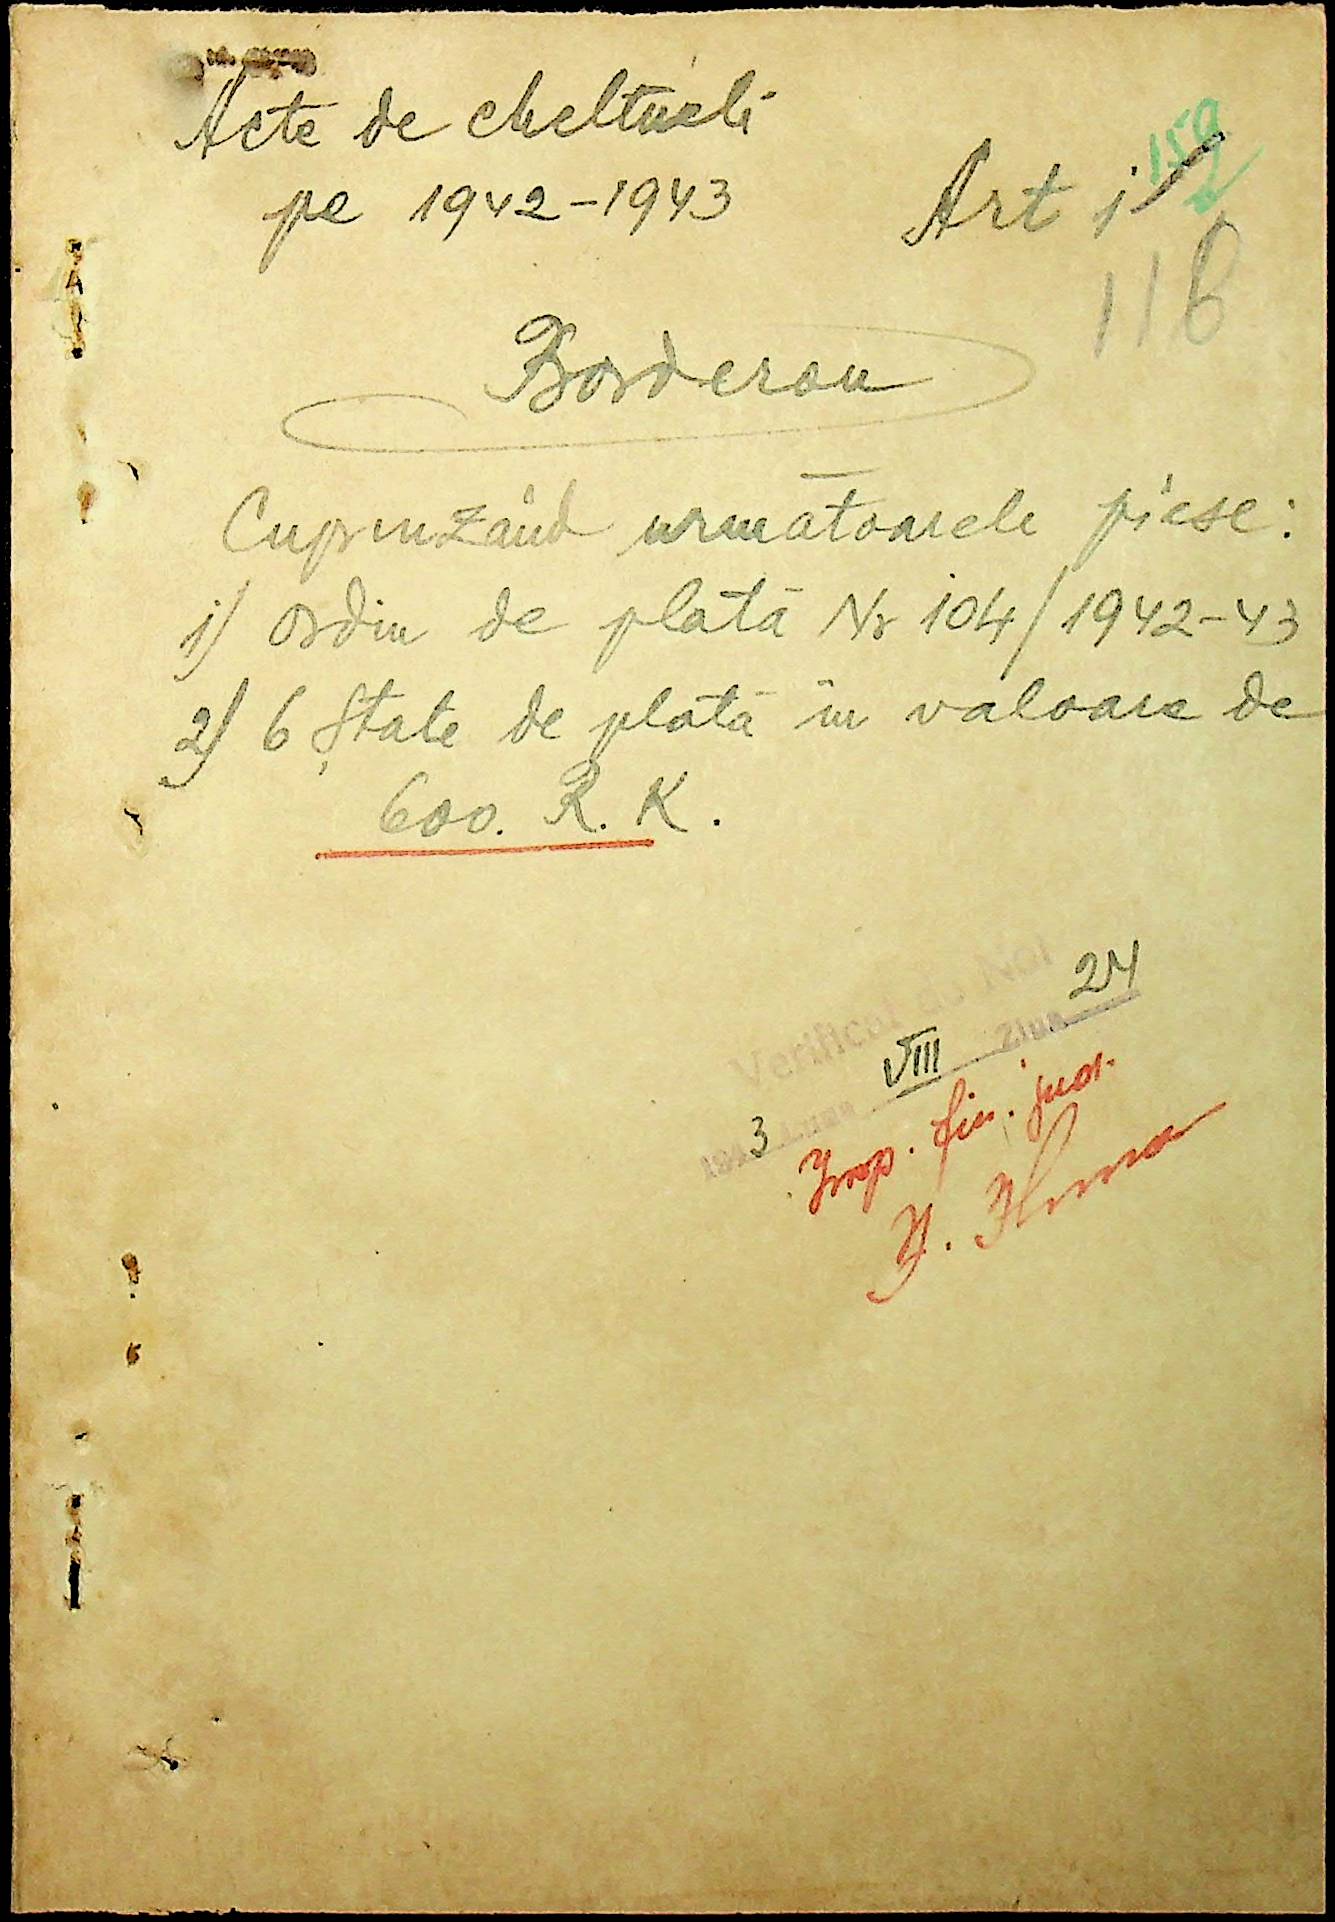 Acte de cheltueli
pe 1942-1943
Art 1
159
118
Borderou
Cuprinzând urmatoarele piese:
1) ordin de plată Nr 104/1942-43
2) 6 State de plată în valoare de
600. R. K.
Verificat de Noi
1943 Luna VIII Ziua 24
Insp. fin. jud.